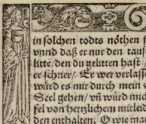 in solchen todts nöthen s
vnnd daß er nur den tauf
litte, den du gelitten hast
er schrey/ Er wer verlass
würd es mir durch mein
Seel gehen/ vñ würd mich
fel von hertzlichem mitleid
den enthalten, O wie man